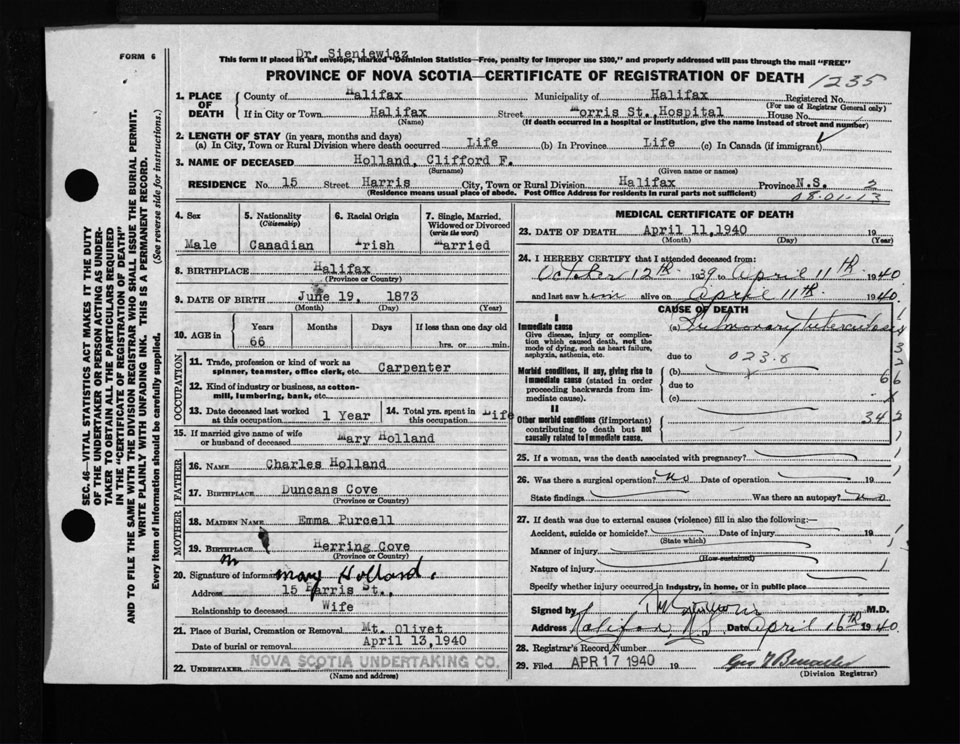 Dr. Sieniewicz
FORM 6
This form if placed in an envelope, marked "Dominion Statistics—Free, penalty for improper use $300," and properly addressed will pass through the mail "FREE"
PROVINCE OF NOVA SCOTIA—CERTIFICATE OF REGISTRATION OF DEATH
1235
SEC. 46—VITAL STATISTICS ACT MAKES IT THE DUTY
OF THE UNDERTAKER OR PERSON ACTING AS UNDER-
TAKER TO OBTAIN ALL THE PARTICULARS REQUIRED
IN THE "CERTIFICATE OF REGISTRATION OF DEATH"
AND TO FILE THE SAME WITH THE DIVISION REGISTRAR WHO SHALL ISSUE THE BURIAL PERMIT.
WRITE PLAINLY WITH UNFADING INK. THIS IS A PERMANENT RECORD.
Every item of information should be carefully supplied. (See reverse side for instructions.)
1. PLACE OF DEATH
County of Halifax Municipality of Halifax Registered No.
(For use of Registrar General only)
If in City or Town Halifax Street Morris St., Hospital House No.
(Name) (If death occurred in a hospital or institution, give the name instead of street and number)
2. LENGTH OF STAY (in years, months and days)
(a) In City, Town or Rural Division where death occurred Life (b) In Province Life (c) In Canada (if immigrant)
3. NAME OF DECEASED Holland, Clifford F.
(Surname) (Given name or names)
RESIDENCE No. 15 Street Harris City, Town or Rural Division Halifax Province N.S. 2
(Residence means usual place of abode. Post Office Address for residents in rural parts not sufficient)
08-01-13
4. Sex
Male
5. Nationality
(Citizenship)
Canadian
6. Racial Origin
Irish
7. Single, Married, Widowed or Divorced
(write the word)
Married
8. BIRTHPLACE Halifax
(Province or Country)
9. DATE OF BIRTH June 19, 1873
(Month) (Day) (Year)
10. AGE in Years Months Days If less than one day old
66 hrs. or min.
OCCUPATION
11. Trade, profession or kind of work as
spinner, teamster, office clerk, etc. Carpenter
12. Kind of industry or business, as cotton-
mill, lumbering, bank, etc.
13. Date deceased last worked at this occupation 1 Year
14. Total yrs. spent in this occupation Life
15. If married give name of wife
or husband of deceased Mary Holland
FATHER
16. NAME Charles Holland
17. BIRTHPLACE Duncans Cove
(Province or Country)
MOTHER
18. MAIDEN NAME Emma Purcell
19. BIRTHPLACE Herring Cove
(Province or Country)
20. Signature of informant Mary Holland.
Address 15 Harris St.,
Relationship to deceased Wife
21. Place of Burial, Cremation or Removal Mt. Olivet
Date of burial or removal April 13, 1940
22. UNDERTAKER NOVA SCOTIA UNDERTAKING CO.
(Name and address)
MEDICAL CERTIFICATE OF DEATH
23. DATE OF DEATH April 11, 1940 19
(Month) (Day) (Year)
24. I HEREBY CERTIFY that I attended deceased from:
October 12th 1939 to April 11th 1940
and last saw him alive on April 11th 1940.
CAUSE OF DEATH
I
Immediate cause
Give disease, injury or complica-
tion which caused death, not the
mode of dying, such as heart failure,
asphyxia, asthenia, etc.
(a) Pulmonary Tuberculosis
due to 023.8
Morbid conditions, if any, giving rise to
immediate cause (stated in order
proceeding backwards from im-
mediate cause).
(b)
due to
(c)
II
Other morbid conditions (if important)
contributing to death but not
causally related to immediate cause.
25. If a woman, was the death associated with pregnancy?
26. Was there a surgical operation? No Date of operation 19
State findings Was there an autopsy? No
27. If death was due to external causes (violence) fill in also the following:—
Accident, suicide or homicide? Date of injury 19
(State which)
Manner of injury
(How sustained)
Nature of injury
Specify whether injury occurred in industry, in home, or in public place
Signed by M.D.
Address Halifax, N.S. Date April 16th 1940
28. Registrar's Record Number
29. Filed APR 17 1940 19
(Division Registrar)